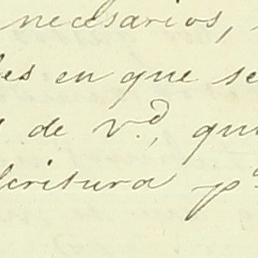 necesarios,
es en que se
de v.d, qu
critura pa